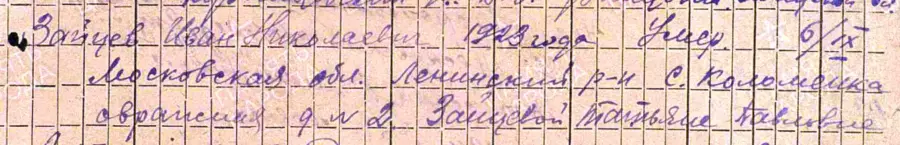 Зайцев Иван Николаевич 1923 года Умер. 6/IX
Московская обл. Ленинский р-н с. Коломенка
овражная д № 2. Зайцевой Татьяне Павловне